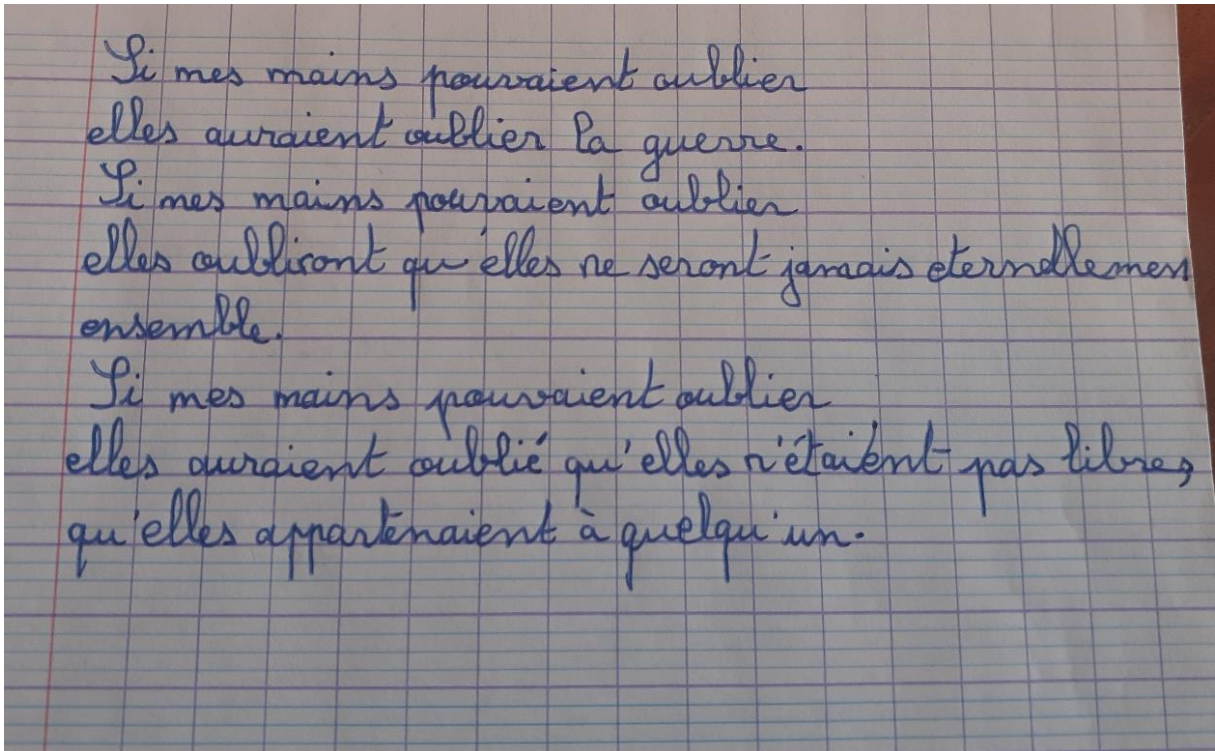 Si mes mains pouvaient oublier
elles auraient oublier la guerre.
Si mes mains pouvaient oublier
elles oubliront qu'elles ne seront jamais eternellemen
ensemble.
Si mes mains pouvaient oublier
elles auraient oublié qu'elles n'étaient pas libres,
qu'elles appartenaient à quelqu'un.